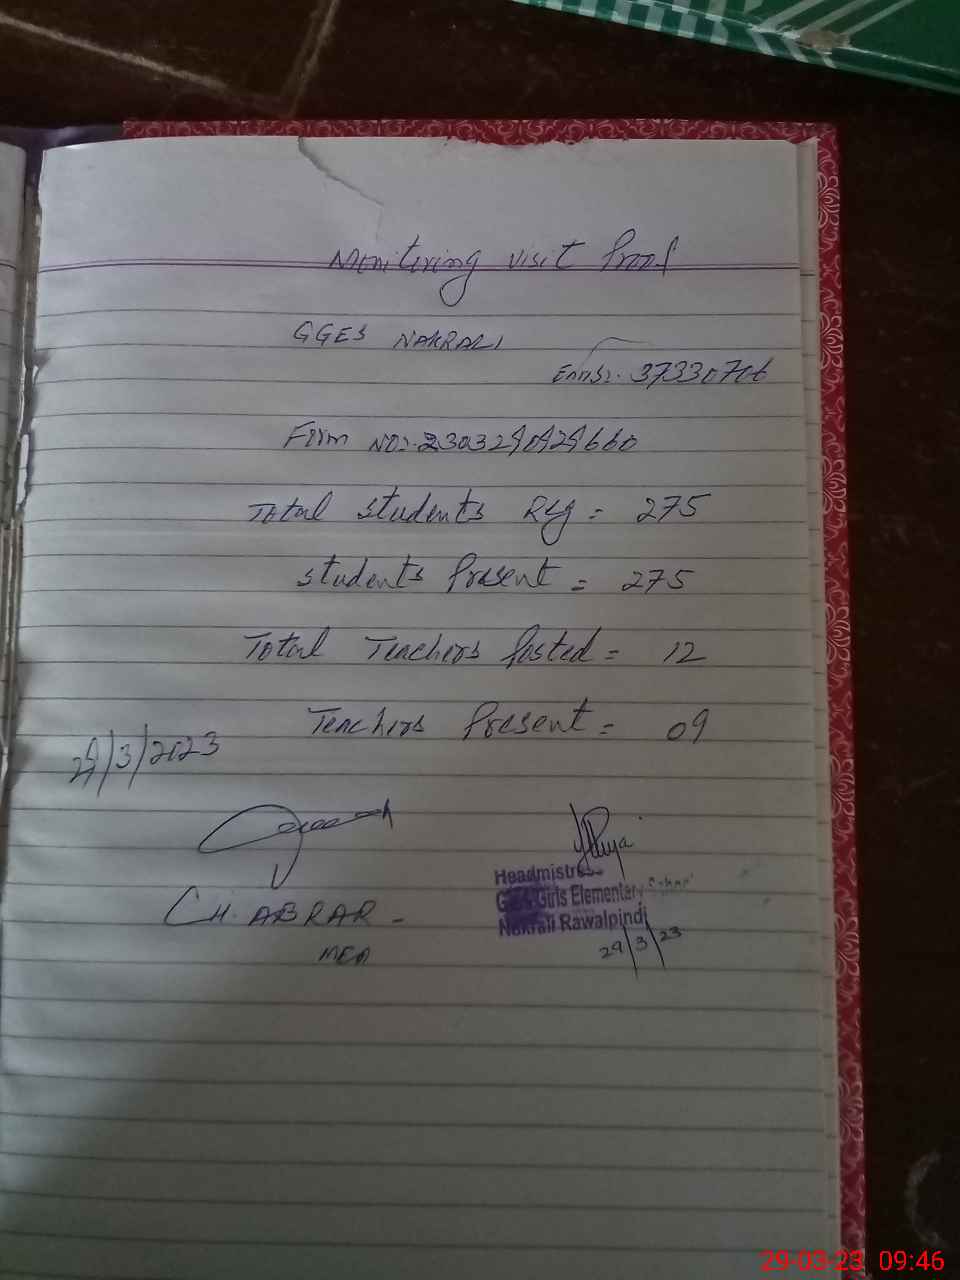 Monitering visit Proof
GGES NAKRALI
EMIS:- 37330706
Form NO:- 2303290929660
Total students Reg = 275
students Present = 275
Total Teachers Posted = 12
Teachers Present = 09
29/3/2023
CH. ABRAR -
MEA
Headmistress
Govt Girls Elementary School
Nakrali Rawalpindi
29/3/23
29-03-23 09:46